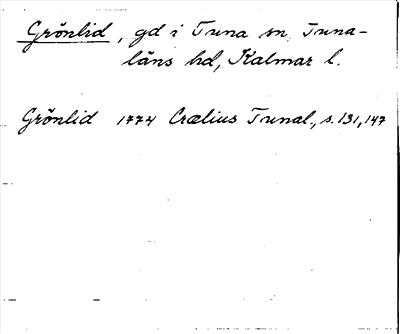 Grönlid, gd i Tuna sn, Tuna-
läns hd, Kalmar l.
Grönlid 1774 Crælius Tunal., s. 131, 147